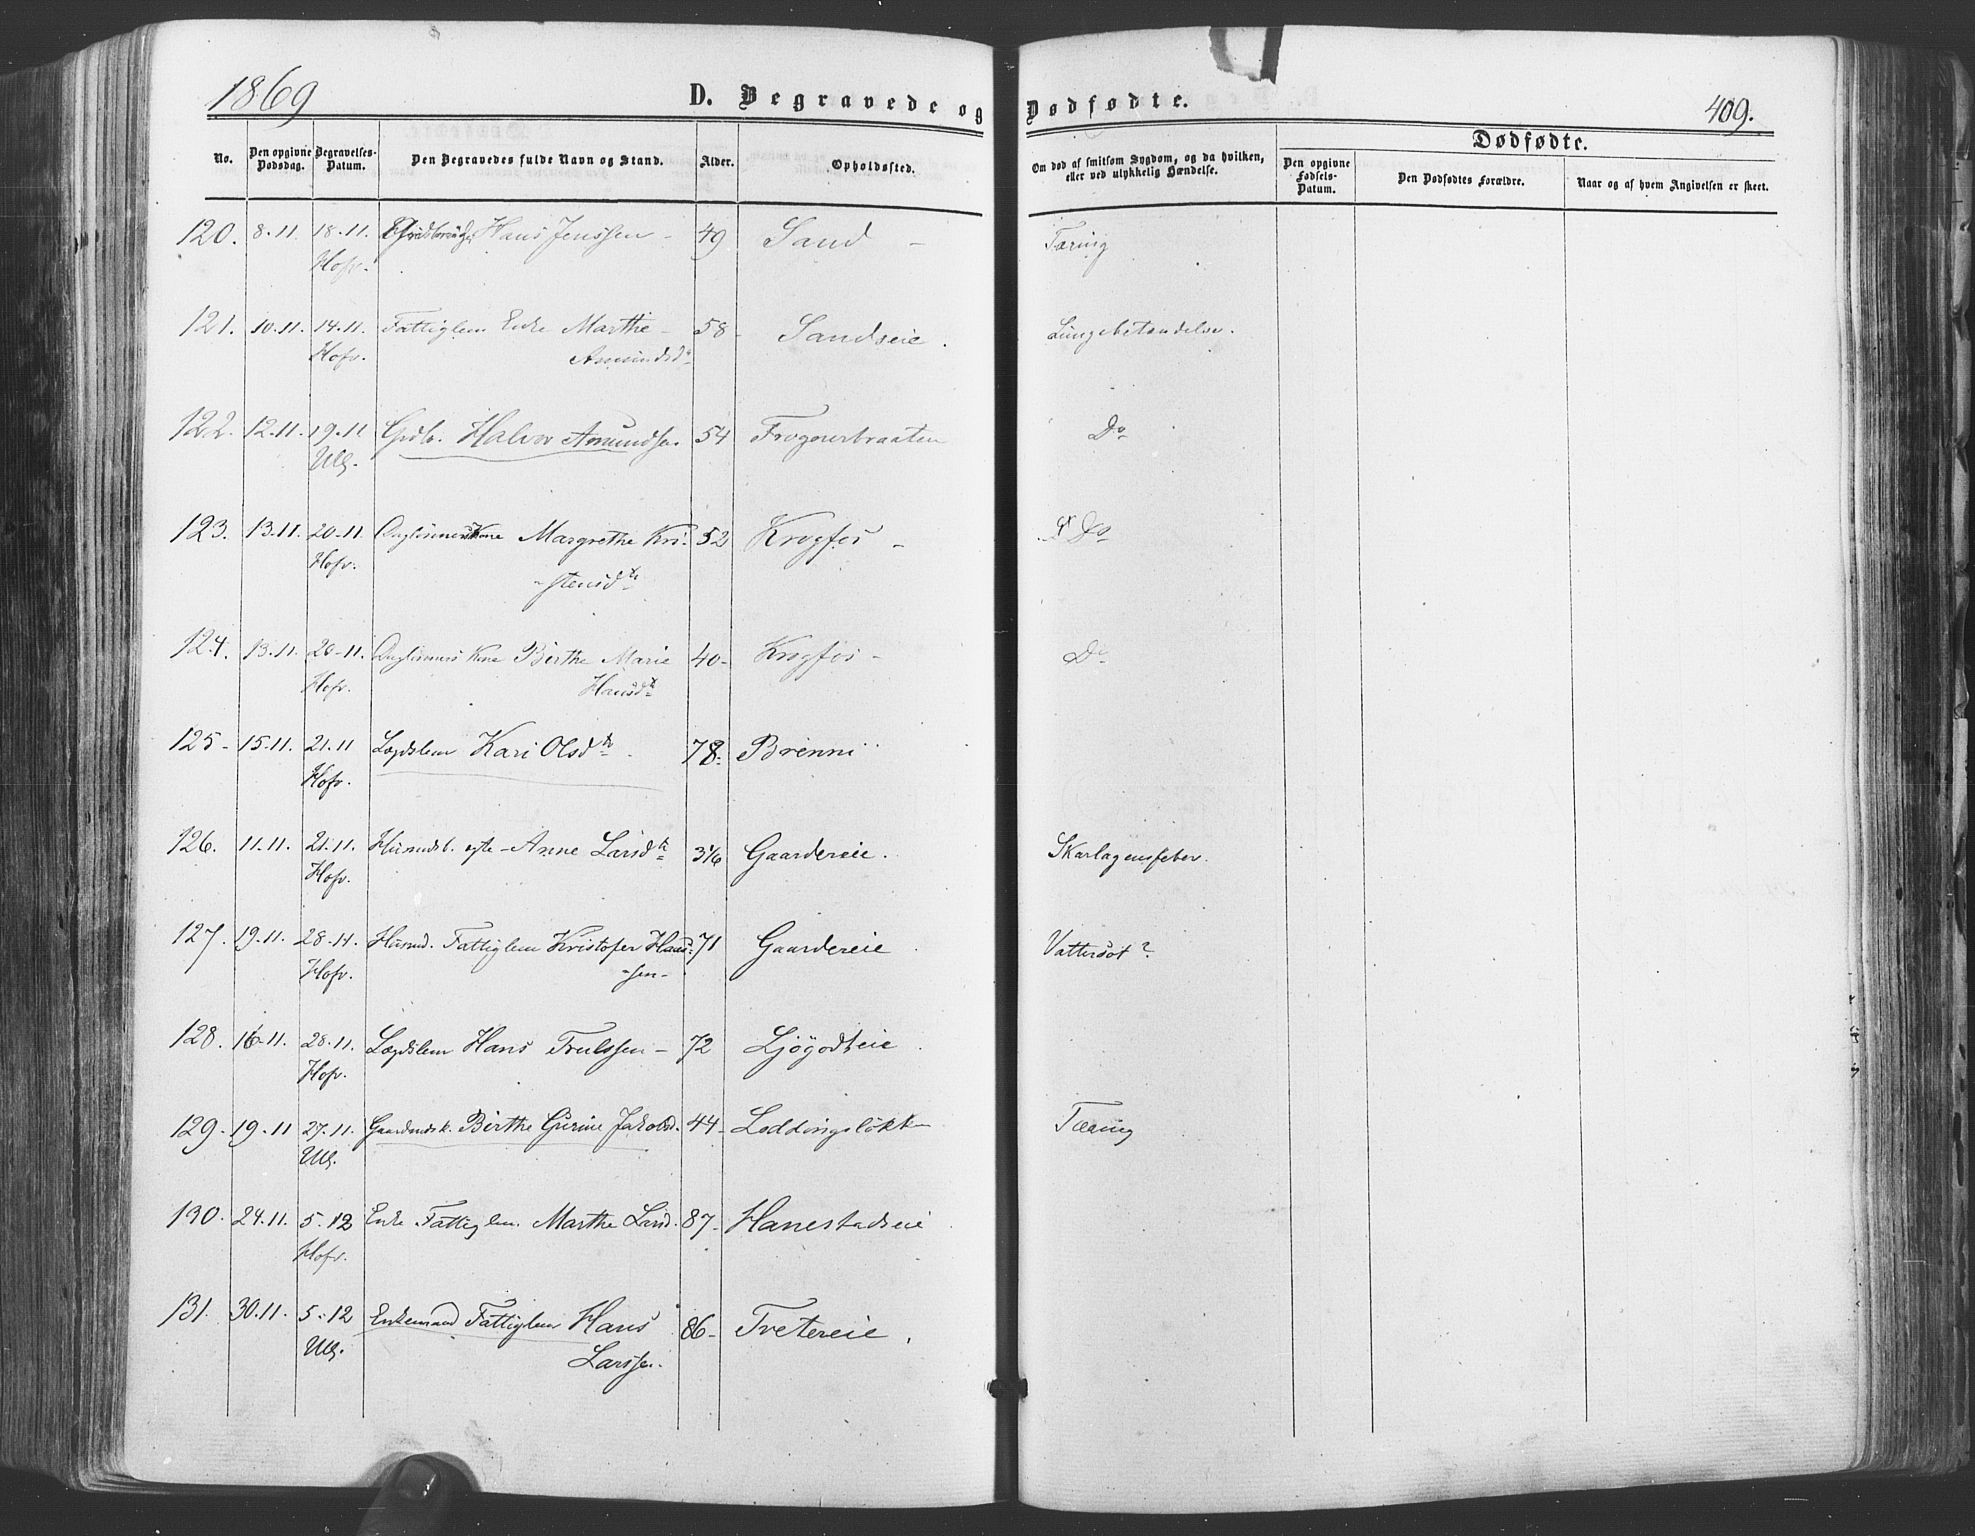 1869
D. Begravede og Dødfødte.
409.
No.
Den opgivne Dødsdag.
Begravelses-Datum.
Den Begravedes fulde Navn og Stand.
Alder.
Opholdssted.
Om død af smitsom Sygdom, og da hvilken, eller ved ulykkelig Hændelse.
Dødfødte.
Den opgivne Fødsels-Datum.
Den Dødfødtes Forældre.
Naar og af hvem Angivelsen er skeet.
120. 8-11. 18-11. Hans Jenssen - 49 Sand - Tæring
Hofv.
121. 10.11. 14.11. Fattiglem Enke Marthe - 58- Sandseie. Lungebetændelse.
Hofv. Amundsdr
122. 12.11. 19.11 Grdbr. Halvor Amundsen. 54 Frognerbraaten Do
Ull.
123. 13.11. 20-11 Kone Margrethe Kri- 52 Krogfos - Do
Hofv. -stensdtr
124. 13.11. 20-11. Kone Birthe Marie 40- Krogfos - Do
Hofv. Hansdtr
125- 15.11. 21.11 Lægdslem Kari Olsdtr. 78- Brenni
Hofv.
126. 11.11. 21.11. Husmdsb. egte - Anne Larsdtr 3 1/6 Gaardereie. Skarlagensfeber.
Hofv.
127. 19.11. 28-11. Husmd. Fattiglem Kristofer Hans- 71 Gaardereie Vattersot?
Hofv. -sen-
128. 16-11. 28.11. Lægdslem Hans Trulssen - 72 Ljøgodteie.
Hofv.
129- 19-11 27.11. Gaardmdsk. Birthe Gurine Jakobsd. 44- Loddingsløkken Tæring
Ull.
130. 24.11. 5.12 Enke Fattiglem. Marthe Larsd. 87- Hanestadseie
Hofv.
131. 30.11. 5-12 Enkemand Fattiglem Hans 86- Tvetereie.
Ull. Larssen.